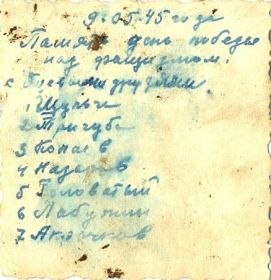 9.05.45 года
Память день победы
над фашизмом.
с боевыми друзьями.
1 Шульги
2 Тригуб
3 Конаев
4 Назаров
5 Головатый
6 Лабужин
7